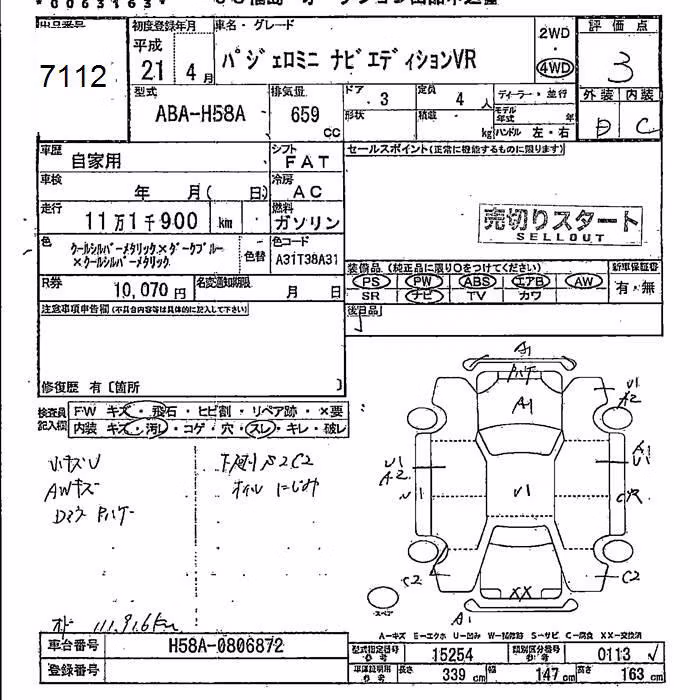 *0063163*
出品番号 7112
初度登録年月 平成 21年 4月
車名・グレード パジェロミニ ナビエディションVR
2WD・4WD
評価点 3
外装 D 内装 C
型式 ABA-H58A
排気量 659 CC
ドア 3 定員 4人
形状 積載 kg
ディーラー・並行
モデル年式 年
ハンドル 左・右
車歴 自家用
シフト FAT
セールスポイント(正常に機能するものに限ります)
車検 年 月( 日)
冷房 AC
走行 11万1千900 km
燃料 ガソリン
売切りスタート
SELLOUT
色 クールシルバーメタリック×ダークブルー×クールシルバーメタリック
色替
色コード A31T38A31
装備品 (純正品に限り○をつけてください)
PS PW ABS エアB AW
SR ナビ TV カワ
新車保証書 有・無
R券 10,070円
名変通知期限 月 日
後日品
注意事項申告欄(不具合内容等は具体的に記入して下さい)
修復歴 有〔箇所 〕
検査員記入欄
FW キズ・飛石・ヒビ割・リペア跡・×要
内装 キズ・汚れ・コゲ・穴・スレ・キレ・破レ
小キズU
AWキズ
下廻りS2C2
オイルにじみ
A1
A1
U1
A2
U1
A2
A1
U1
U1
C2
C2
XX
スペア
A1
オド 111,916km
A-キズ E-エクボ U-凹み W-補修跡 S-サビ C-腐食 XX-交換済
車台番号 H58A-0806872
登録番号
型式指定番号 15254
類別区分番号 0113
長さ 339 cm 幅 147 cm 高さ 163 cm